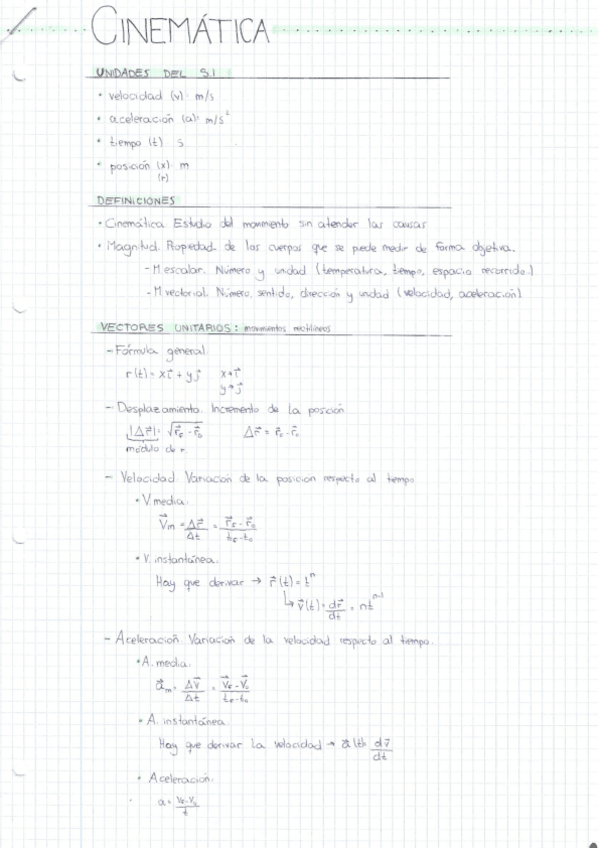 CINEMÁTICA
UNIDADES DEL S.I
• velocidad (v): m/s
• aceleración (a): m/s²
• tiempo (t) s
• posición (x) m
(r)
DEFINICIONES
• Cinemática. Estudio del movimiento sin atender las causas
• Magnitud. Propiedad de los cuerpos que se pede medir de forma objetiva.
- M escalar. Número y unidad (temperatura, tiempo, espacio recorrido.)
- M vectorial. Número, sentido, dirección y unidad (velocidad, aceleración)
VECTORES UNITARIOS: movimientos rectilíneos
- Fórmula general
r(t) = xi⃗ + yj⃗ x→i⃗
y→j⃗
- Desplazamiento. Incremento de la posición
|Δr⃗| = √r⃗F - r⃗0 Δr⃗ = r⃗F - r⃗0
módulo de r.
- Velocidad. Variación de la posición respecto al tiempo
• V. media.
V⃗m = Δr⃗/Δt = r⃗F - r⃗0/tF - t0
• V. instantánea.
Hay que derivar → r⃗(t) = tⁿ
↳ v⃗(t) = dr⃗/dt = ntⁿ⁻¹
- Aceleración. Variación de la velocidad respecto al tiempo.
• A. media.
a⃗m = ΔV⃗/Δt = V⃗F - V⃗0/tF - t0
• A. instantánea
Hay que derivar la velocidad → a⃗(t) = dv⃗/dt
• Aceleración.
a = VF - V0/t